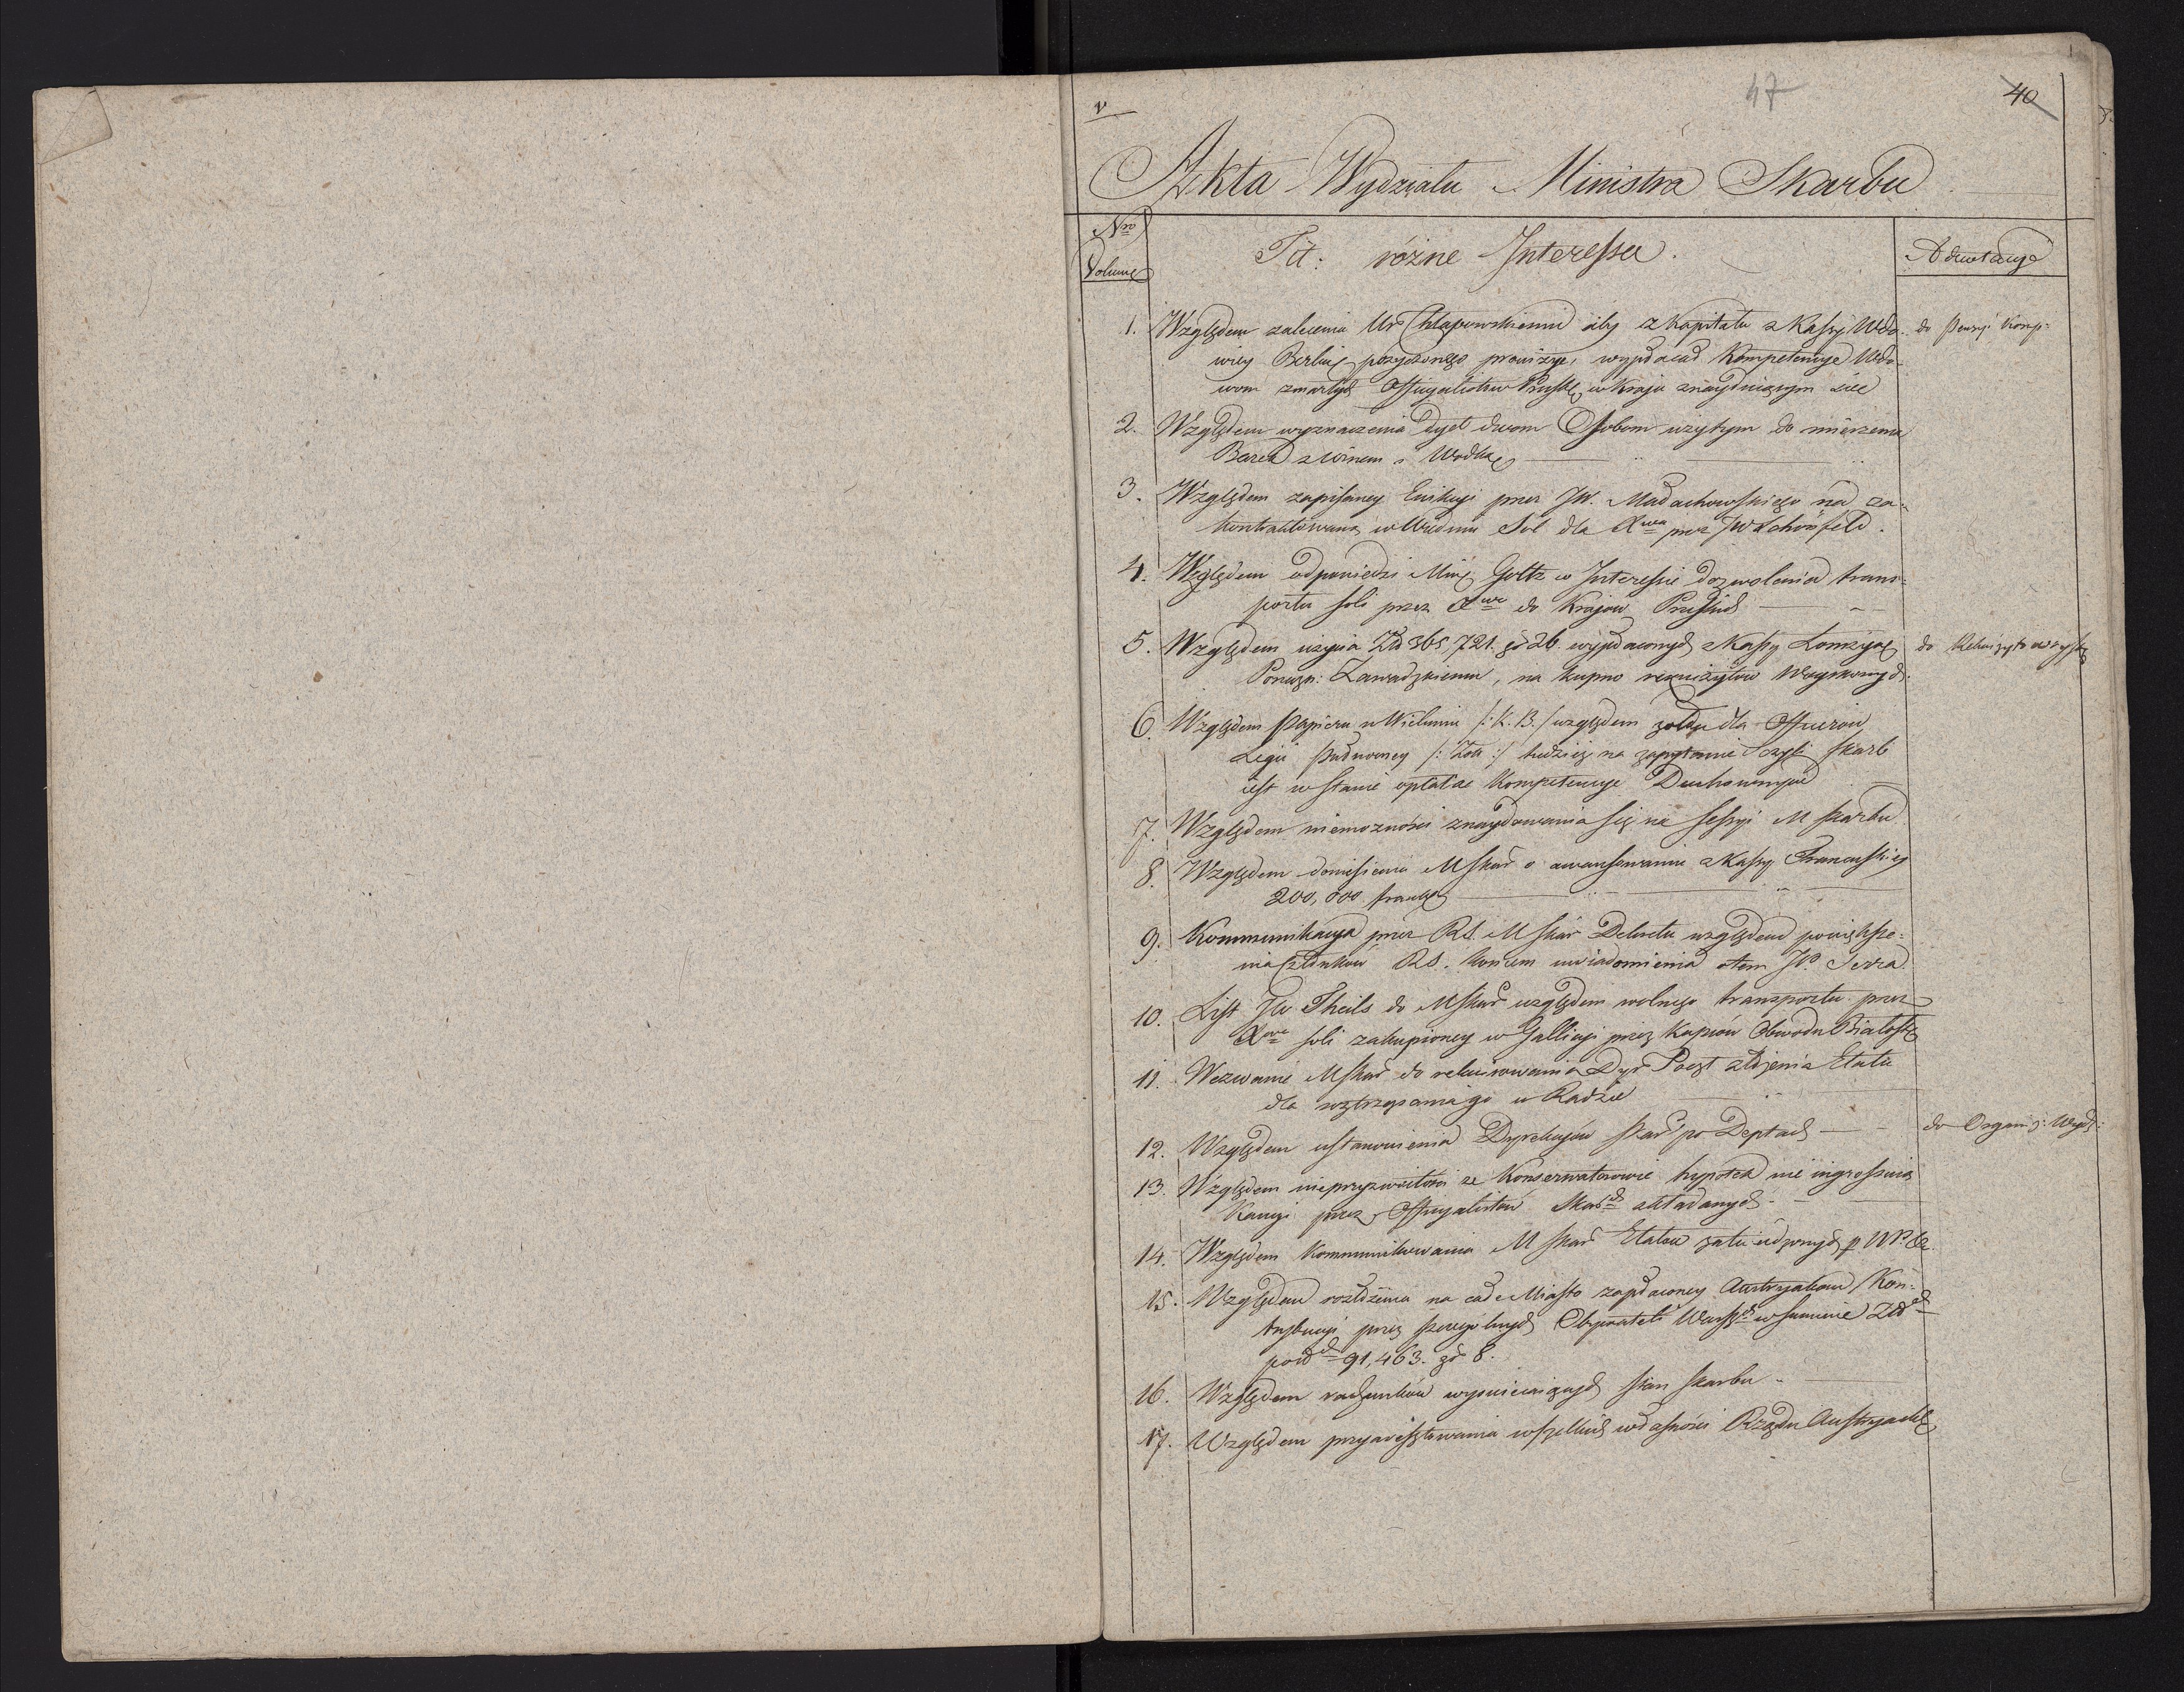 v
47
40
Akta Wydziału Ministra Skarbu
Nro
Volumę
Tit: rózne Interessa.
Adnotacye
1. Względem zalecenia Ur Chłapowskiemu aby z kapitału z Kassy Wdo- do Pensyi Komp:
wiey Berliń pożyczonego prowizye, wypłacał Kompetencye Wdo-
wom zmarłych Officyalistow Prusk, w Kraju znayduiącym się
2. Względem wyznaczenia dyet dwom Osobom użytym do mierzenia
Barek z winem i Wodką
3. Względem zapisaney Ewikcyi przez JW. Małachowskiego na za-
kontraktowaną w Wiedniu Sol dla Xwa przez JW Schönfeld.
4. Względem odpowiedzi Min Goltz w Interesie dozwolenia trans-
portu soli przez Xwo do Krajow Pruskich
5. Względem użycia Złł 365,721. gr 26. wypłaconych z Kassy Łomżyń do Rekwizytow
Porucz: Zawadzkiemu, na kupno rekwizytow Woyskowych
6. Względem Papieru w Wieluniu /: K. B. / względem żołdu dla Officerow
Legii Pułnocney /: Lott :/ tudzież na zapytanie czyli Skarb
iest w stanie opłacać Kompetencye Duchownym
7. Względem niemożności znaydowania się na Sessyi M Skarbu
8. Względem doniesienia M Skar o awansowaniu z Kassy Francuskiey
200,000 frank
9. Kommunikacya przez RS. M Skar Dekretu względem powiększe-
nia Członków RS. koncem uwiadomienia o tem JP Serra
10. List JW Theils do M Skar względem wolnego transportu przez
Xwo soli zakupioney w Gallicyi przez Kupców Obwodu Białost
11. Wezwanie M Skar do rekwirowania Dyr Poczt złożenia Etatu
dla roztrząsania go w Radzie
12. Względem ustanowienia Dyrekcyów Skar po Deptach do Organiz: Wydz:
13. Względem nieprzyzwoitości ze Konserwatorowie hypotek nie ingrossuią
Kaucyi przez Officyalistów Skarch składanych
14. Względem Kommunikowania M Skar Etatow zatwierdzonych p WP.
15. Względem rozłożenia na całe Miasto zapłaconey Austryakom Kon-
trybucyi przez szczególnych Obywateli Warsz w summie Złłch
polch 91,463. gr 8.
16. Względem rachunków wyświecaiących stan Skarbu
17. Względem przyaresztowania wszelkich własności Rządu Austryack